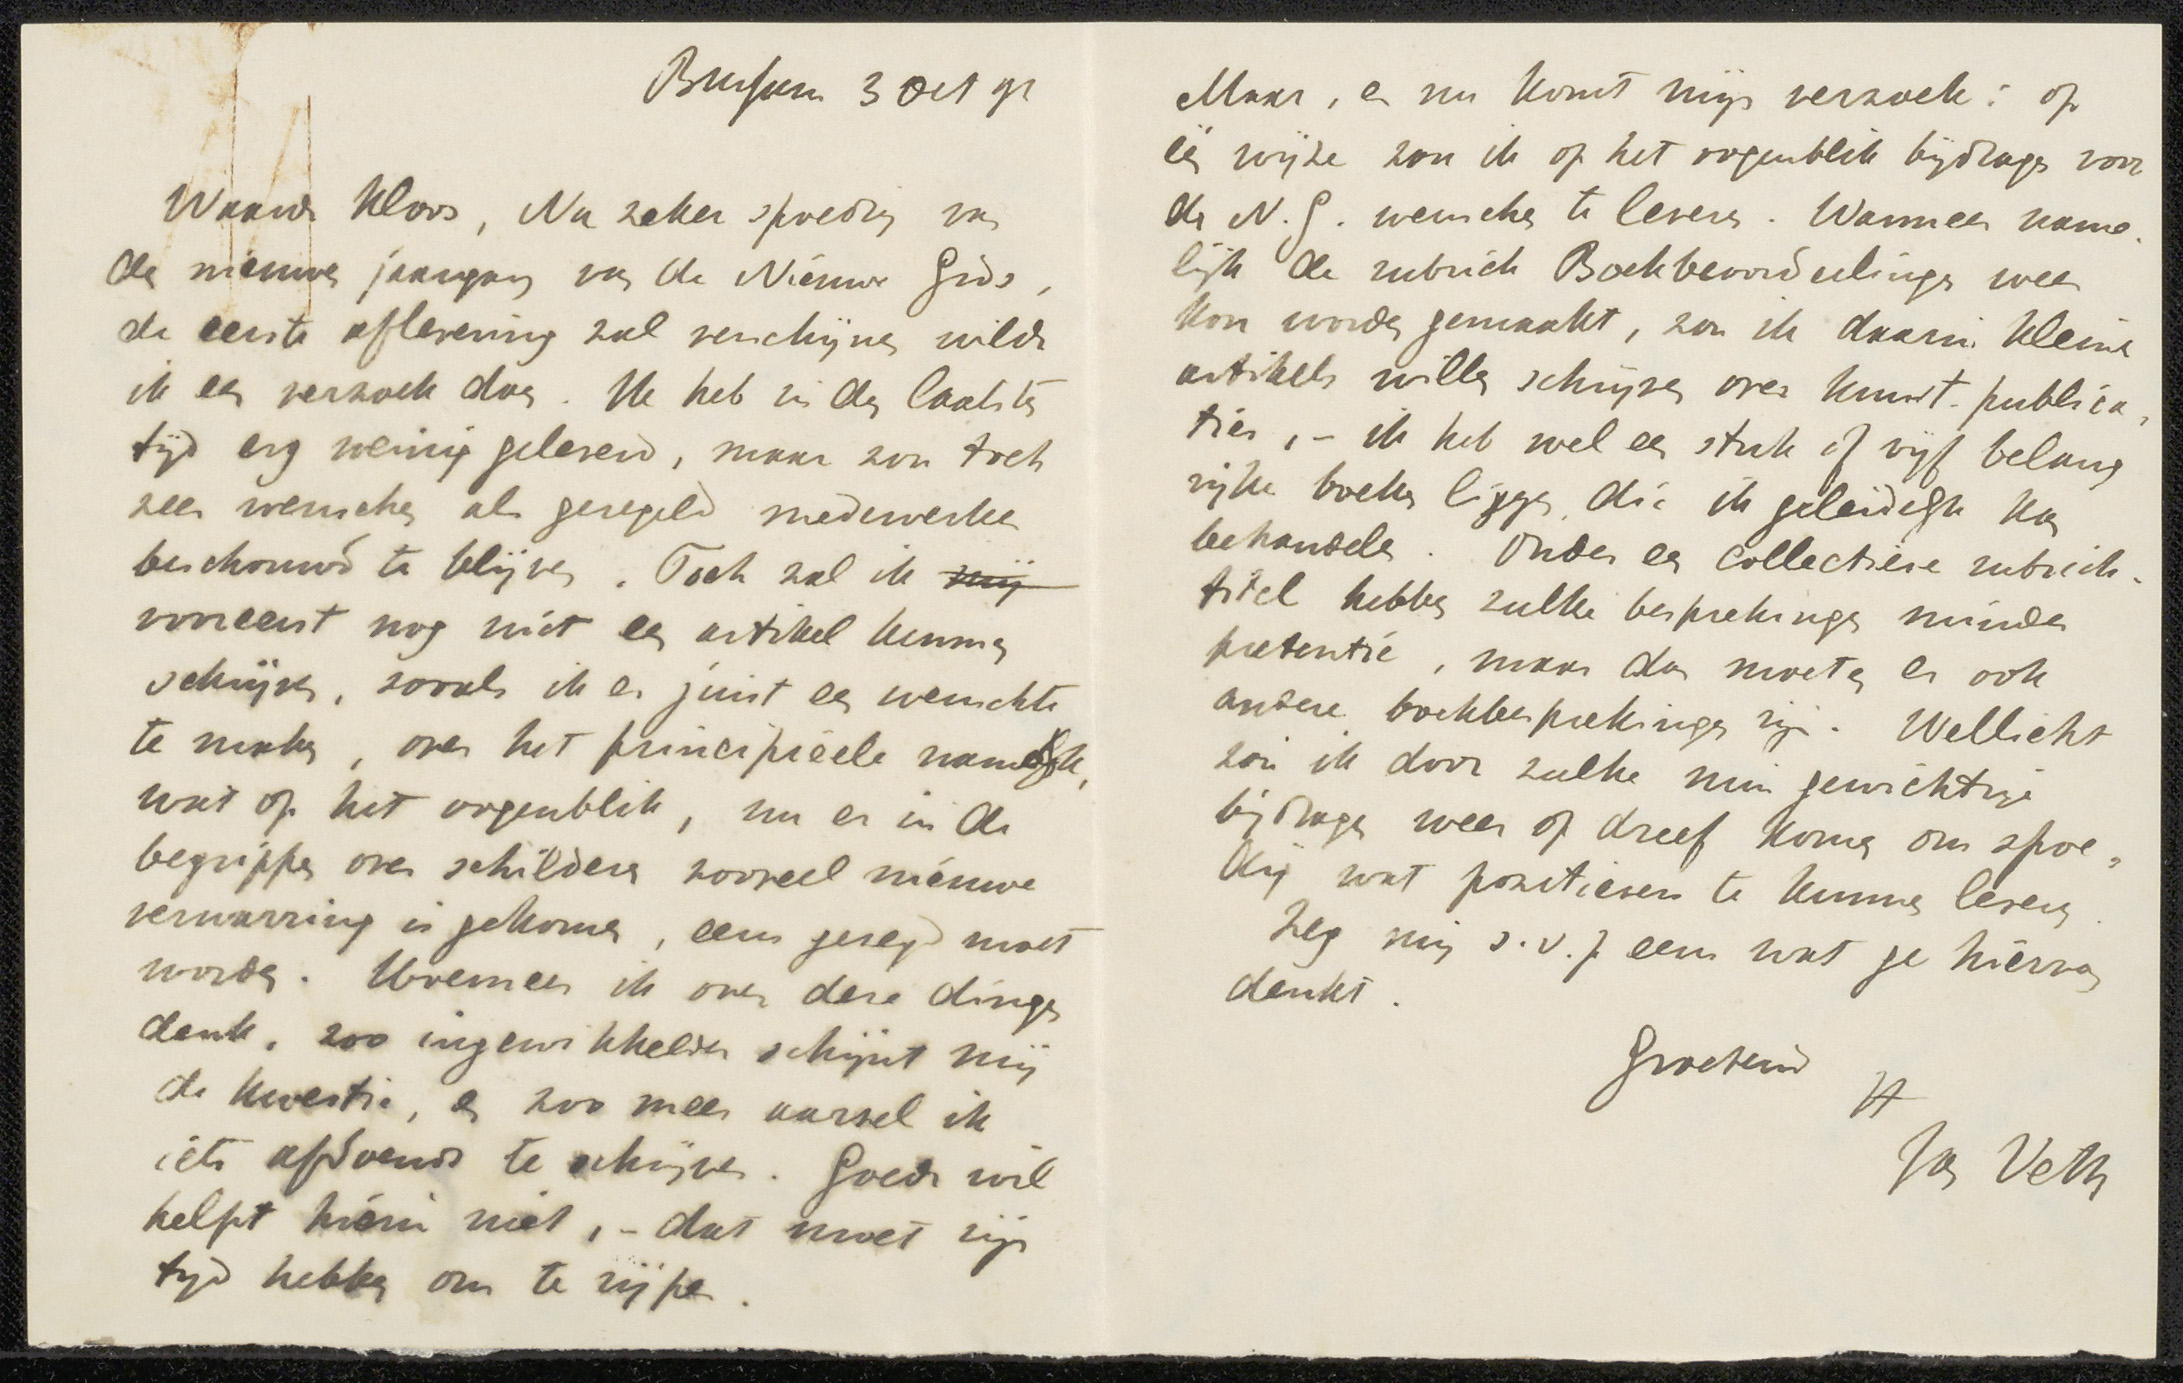 Bussum 3 Oct 91
Waarde Kloos, Nu zeker spoedig van
den nieuwen jaargang van de Nieuwe Gids,
de eerste aflevering zal verschijnen wilde
ik een verzoek doen. Ik heb in den laatsten
tijd erg weinig geleverd, maar zou toch
zeer wenschen als geregeld medewerker
beschouwd te blijven. Toch zal ik mij
vooreerst nog niet een artikel kunnen
schrijven, zooals ik er juist een wenschte
te maken, over het principieele namelijk,
wat op het oogenblik, nu er in de
begrippen over schilderen zooveel nieuwe
verwarring is gekomen, eens gezegd moet
worden. Hoemeer ik over deze dingen
denk, zoo ingewikkelder schijnt mij
de kwestie, en zoo meer aarzel ik
iets afdoends te schrijven. Goede wil
helpt hierin niet, - dat moet zijn
tijd hebben om te rijpen.
Maar, en nu komt mijn verzoek: op
één wijze zou ik op het oogenblik bijdragen voor
de N.G. wenschen te leveren. Wanneer name-
lijk de rubriek Boekbeoordeelingen weer
kon worden gemaakt, zou ik daarin kleine
artikels willen schrijven over kunst-publica-
ties, - ik heb wel een stuk of vijf belang
rijke boeken liggen die ik geleidelijk kan
behandelen. Onder een collectieve rubriek-
titel hebben zulke besprekingen minder
pretentie, maar dan moeten er ook
andere boekbesprekingen zijn. Wellicht
zou ik door zulke min gewichtige
bijdragen weer op dreef komen om spoe-
dig wat positievers te kunnen leveren.
Zeg mij s.v.p eens wat je hiervan
denkt.
Groetend
tt
Jan Veth